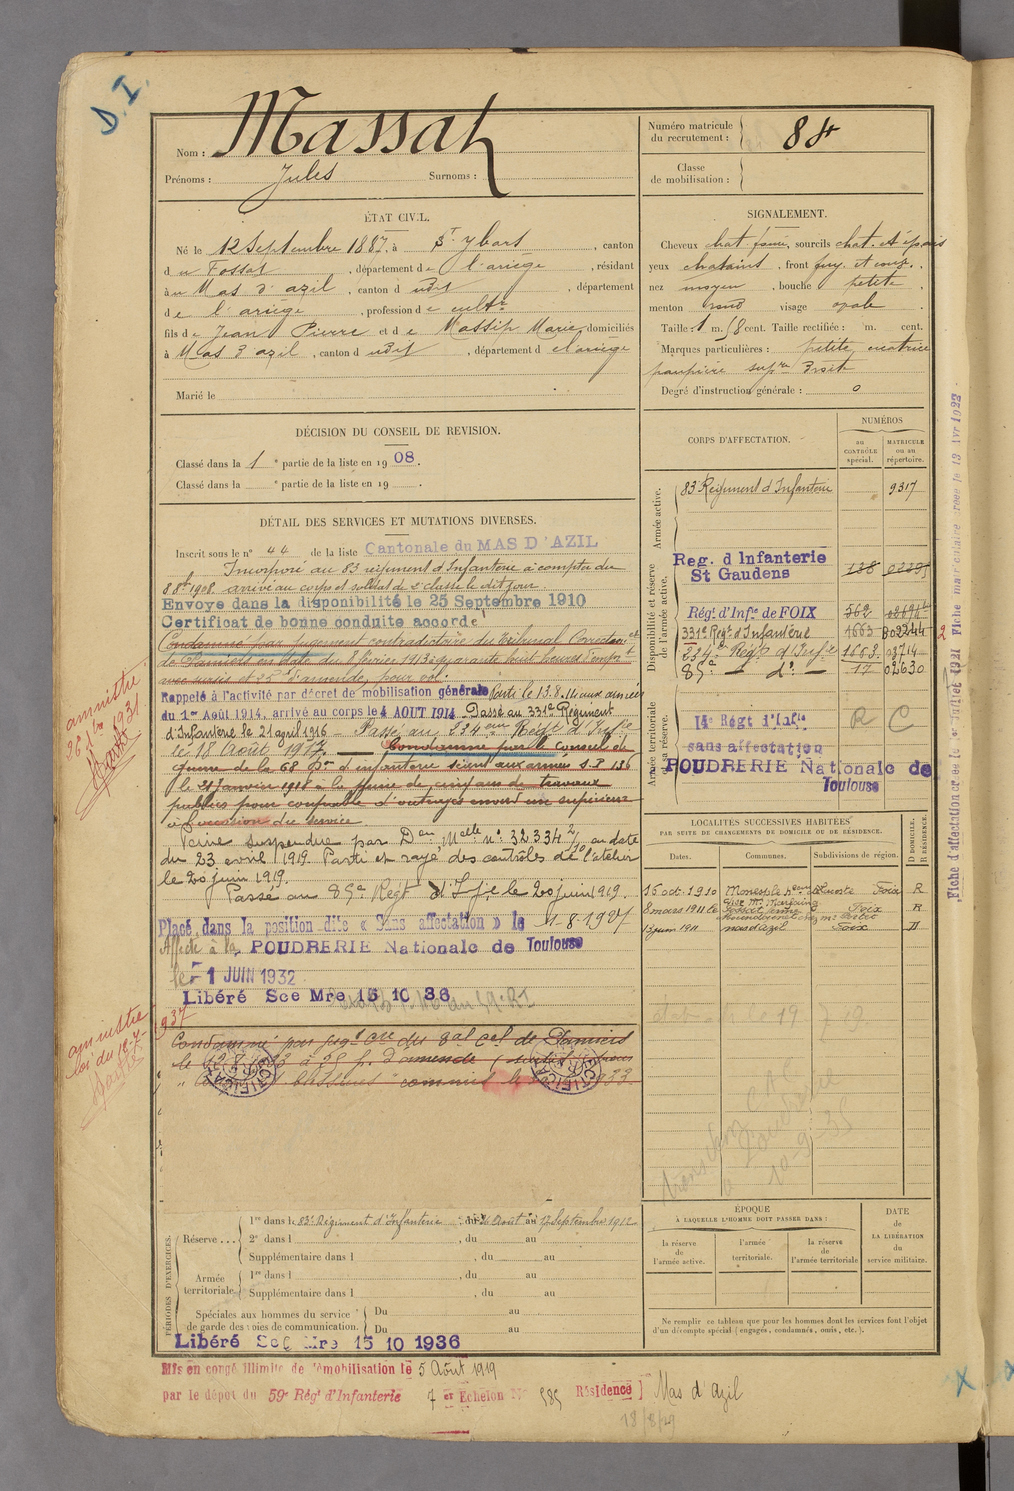 D. I.
Nom : Massat
Prénoms : Jules Surnoms :
Numéro matricule du recrutement : 84
Classe de mobilisation :
ÉTAT CIVIL.
Né le 12 Septembre 1887, à St Ybars, canton
du Fossat, département de l'ariège, résidant
à u Mas d'azil, canton d udit, département
de l'ariège, profession de cultr
fils de Jean Pierre et de Massip Marie, domiciliés
à Mas d'azil, canton d udit, département d el'ariège
Marié le
SIGNALEMENT.
Cheveux chat. foncé, sourcils chat. et épais
yeux chatains, front
nez moyen, bouche petite
menton rond visage ovale
Taille : 1 m. 58 cent. Taille rectifiée : m. cent.
Marques particulières : petite cicatrice
paupière supre droite
Degré d'instruction générale : 0
DÉCISION DU CONSEIL DE REVISION.
Classé dans la 1e partie de la liste en 1908.
Classé dans la e partie de la liste en 19 .
DÉTAIL DES SERVICES ET MUTATIONS DIVERSES.
Inscrit sous le n° 44 de la liste Cantonale du MAS D'AZIL
Incorporé au 83 régiment d'Infanterie à compter du
8 8bre 1908. arrivé au corps et soldat de 2e classe le dit jour
Envoyé dans la disponibilité le 25 Septembre 1910
Certificat de bonne conduite accordé
Condamné par jugement contradictoire du Tribunal Correctionel
de Pamiers en date du 8 février 1913 à quarante huit heures d'empt
avec sursis et 25 f d'amende, pour vol.
Rappelé à l'activité par décret de mobilisation générale Parti le 13.8.14 aux armées
du 1er Août 1914, arrivé au corps le 4 AOUT 1914. Passé au 331e Régiment
d'Infanterie le 21 avril 1916 — Passé au 234eme Régt d'Inf.ie
le 18 Août 1917. — Condamné par le Conseil de
guerre de la 68 Don d'infanterie séant aux armées S.P. 136
le 28 Janvier 1918 à la peine de cinq ans de travaux
publics pour coupable d'outrages envers un supérieur
à l'occasion du service
Peine suspendue par Don Melle n° 32.334 2/10 en date
du 23 avril 1919. Parti et rayé des contrôles de l'atelier
le 20 juin 1919.
Passé au 85e Régt d'Ifie le 20 juin 1919.
Placé dans la position dite « Sans affectation » le 1-8-1927
Affecté à la POUDRERIE Nationale de Toulouse
le 1 JUIN 1932
Libéré Sce Mre 15 10 36
Condamné par jugt du Bal Cel de Pamiers
à 25 f. d'amende
amnistie
1931
amnistie
loi du 12-7-
1937
CORPS D'AFFECTATION.
NUMÉROS
au CONTRÔLE spécial.
MATRICULE ou au répertoire.
Armée active.
83 Régiment d'Infanterie 9317
Disponibilité et réserve de l'armée active.
Reg. d Infanterie St Gaudens 138
Régt d'Infie de FOIX 562
331e Régt d'Infanterie 1663 002444
234e Régt d'Infie 1653. 03714
85e — d°. — 17 02630
Armée territoriale et sa réserve.
14e Régt d'Infie R C
sans affectation
POUDRERIE Nationale de Toulouse
LOCALITÉS SUCCESSIVES HABITÉES
PAR SUITE DE CHANGEMENTS DE DOMICILE OU DE RÉSIDENCE.
Dates. Communes. Subdivisions de région. D DOMICILE. R RÉSIDENCE.
15 oct. 1910 Foix R
8 mars 1911 Foix R
13 juin 1911 mas d'azil Foix D
10-9-35
PÉRIODES D'EXERCICES.
Réserve ... 1re dans le 83e Régiment d'Infanterie, du 26 Août au 17 Septembre 1912
2e dans l , du au
Supplémentaire dans l , du au
Armée territoriale. 1re dans l , du au
Supplémentaire dans l , du au
Spéciales aux hommes du service de garde des voies de communication. Du au
Du au
Libéré Sce Mre 15 10 1936
ÉPOQUE
À LAQUELLE L'HOMME DOIT PASSER DANS :
la réserve de l'armée active.
l'armée territoriale.
la réserve de l'armée territoriale
DATE de LA LIBÉRATION du service militaire.
Ne remplir ce tableau que pour les hommes dont les services font l'objet
d'un décompte spécial (engagés, condamnés, omis, etc.).
Mis en congé illimité de démobilisation le 5 Août 1919
par le dépôt du 59e Régt d'Infanterie 7er Echelon N° 585 Résidence Mas d'Azil
18/8/29